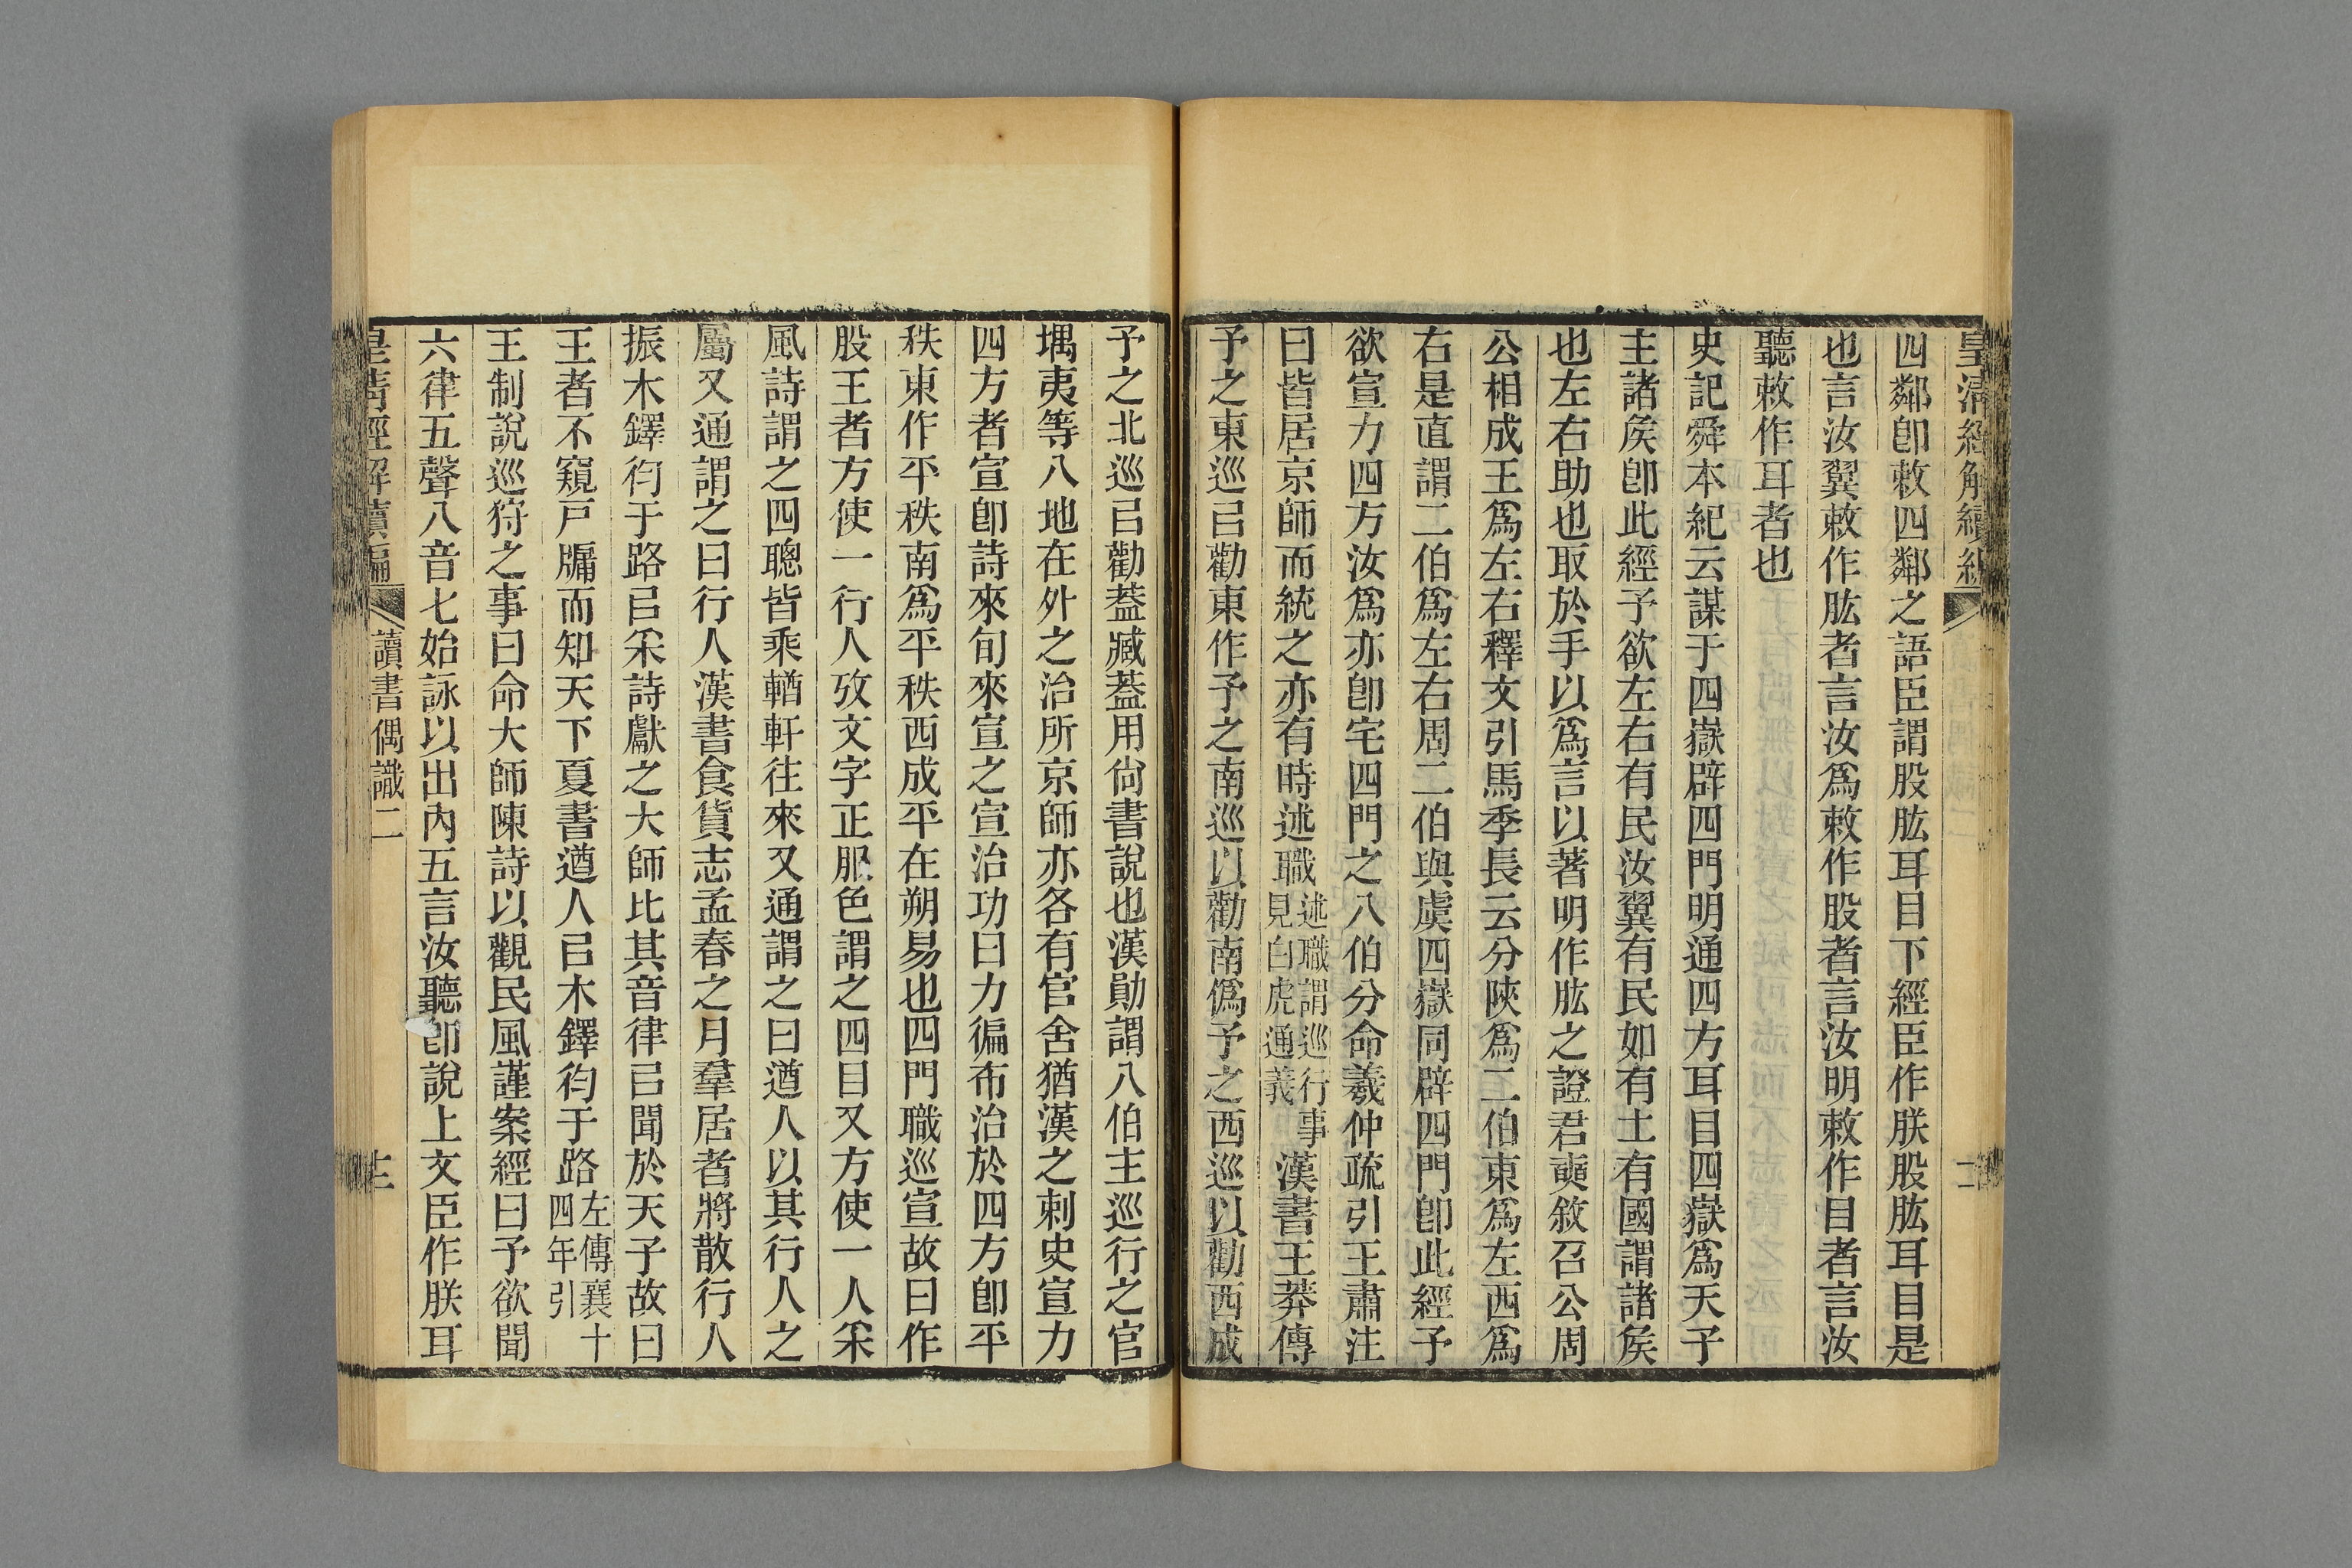 皇清經解續編
四鄰卽敕四鄰之語臣謂股肱耳目下經臣作朕股肱耳目是
也言汝翼敕作肱者言汝爲敕作股者言汝明敕作目者言汝
聽敕作耳者也
史記舜本紀云謀于四嶽辟四門明通四方耳目四嶽爲天子
主諸矦卽此經予欲左右有民汝翼有民如有土有國謂諸矦
也左右助也取於手以爲言以著明作肱之證君奭敘召公周
公相成王爲左右釋文引馬季長云分陜爲二伯東爲左西爲
右是直謂二伯爲左右周二伯與虞四嶽同辟四門卽此經予
欲宣力四方汝爲亦卽宅四門之八伯分命羲仲疏引王肅注
曰皆居京師而統之亦有時述職述職謂巡行事見白虎通義漢書王莽傳
予之東巡㠯勸東作予之南巡以勸南僞予之西巡以勸西成
予之北巡㠯勸葢臧葢用尙書說也漢勛謂八伯主巡行之官
堣夷等八地在外之治所京師亦各有官舍猶漢之刺史宣力
四方者宣卽詩來旬來宣之宣治功曰力徧布治於四方卽平
秩東作平秩南爲平秩西成平在朔易也四門職巡宣故曰作
股王者方使一行人攷文字正服色謂之四目又方使一人采
風詩謂之四聰皆乘輶軒往來又通謂之曰遒人以其行人之
屬又通謂之曰行人漢書食貨志孟春之月羣居者將散行人
振木鐸徇于路㠯采詩獻之大師比其音律㠯聞於天子故曰
王者不窺戸牖而知天下夏書遒人㠯木鐸徇于路左傳襄十四年引
王制說巡狩之事曰命大師陳詩以觀民風謹案經曰予欲聞
六律五聲八音七始詠以出內五言汝聽卽說上文臣作朕耳
皇淸經解續編
讀書偶識二
十二